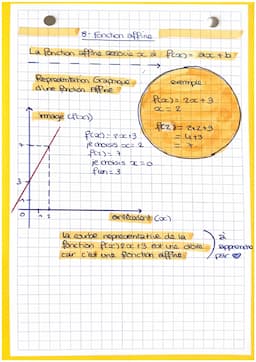 8- Fonction affine
La fonction affine associe x à f(x) = ax + b
Représentation Graphique
d'une fonction Affine
exemple:
f(x) = 2x + 3
x = 2
f(2) = 2×2+3
= 4+3
= 7
image (f(x))
f(x) = 2x+3
je choisis x = 2
f(2) = 7
je choisis x = 0
7
3
0
1 2
antécédent (x)
La courbe représentative de la
fonction f(x) 2x+3 est une droite
car c'est une fonction affine
à
apprendre
par ♥